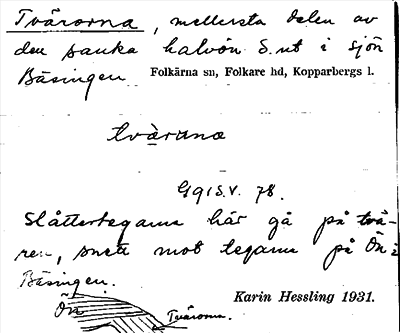 Tvärorna, mellersta delen av
den sanka halvön S. ut i sjön
Bäsingen Folkärna sn, Folkare hd, Kopparbergs l.
tvärana
G 91 S.V. 78.
Slåttertegarna här gå på två-
ren, snett mot tegarna på Ön i
Bäsingen.
Ön
Tvärorna
Karin Hessling 1931.